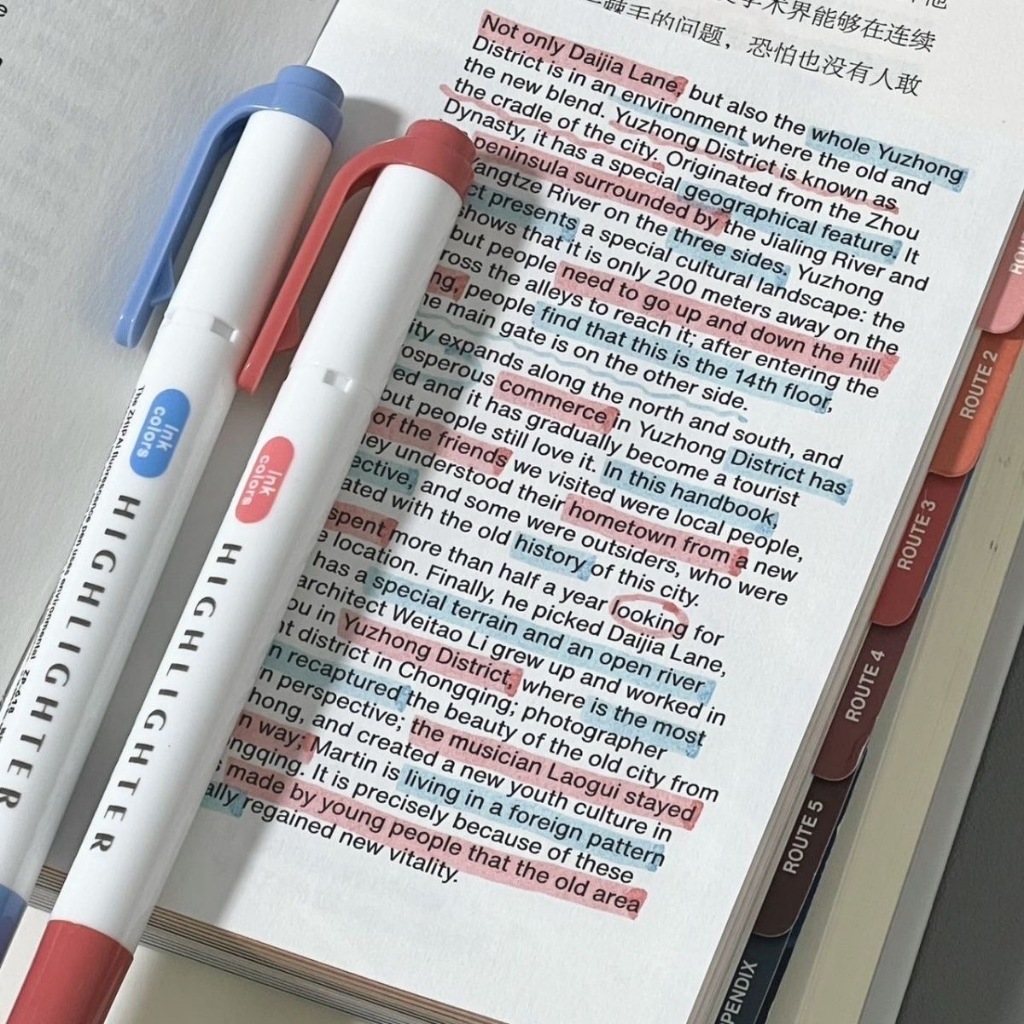 学术界能够在连续
的问题，恐怕也没有人敢
Not only Daijia Lane, but also the whole Yuzhong
District is in an environment where the old and
the new blend. Yuzhong District is known as
the cradle of the city. Originated from the Zhou
Dynasty, it has a special geographical feature. It
peninsula surrounded by the Jialing River and
Yangtze River on the three sides, Yuzhong
presents a special cultural landscape: the
shows that it is only 200 meters away on the
but people need to go up and down the hill
the alleys to reach it; after entering the
people find that this is the 14th floor,
main gate is on the other side.
expands along the north and south, and
commerce in Yuzhong District has
and it has gradually become a tourist
but people still love it. In this handbook,
of the friends we visited were local people,
understood their hometown from a new
and some were outsiders, who were
with the old history of this city.
spent more than half a year looking for
location. Finally, he picked Daijia Lane,
has a special terrain and an open river
architect Weitao Li grew up and worked in
in Yuzhong District, where is the most
district in Chongqing; photographer
recaptured the beauty of the old city from
perspective; the musician Laogui stayed
and created a new youth culture in
way; Martin is living in a foreign pattern
It is precisely because of these
made by young people that the old area
regained new vitality.
Ink colors
HIGHLIGHTER
Ink colors
HIGHLIGHTER
ROUTE 2
ROUTE 3
ROUTE 4
ROUTE 5